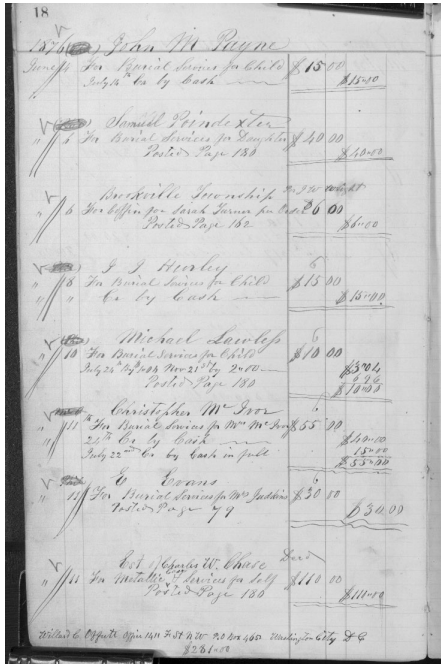 18
1876 John M Payne
June 4 For Burial Services for Child $15 00
July 14th Cr by Cash $15=00
Samuel Poindexter
" 5 For Burial Services for Daughter $40 00
Posted Page 180 $40=00
Brookville Township Pr J W Wright
" 6 For Coffin for Sarah Turner per Order $6 00
Posted Page 162 $6=00
J J Hurley 6
" 8 For Burial Services for Child $15 00
" " Cr by Cash $15=00
Michael Lawless 6
" 10 For Burial Services for Child $10 00
July 24th Nov 21st by 2=00 $3=04
Posted Page 180 6 96
$10=00
Christopher Mc Ivor 6
" 11th For Burial Services for Mrs Mc Ivor $55 00
24th Cr by Cash $40=00
July 22nd Cr by Cash in full 15=00
$55=00
E Evans 6
" 11 For Burial Services for Mrs Juddins $30 00
Posted Page 79 $30.00
Est of Charles W. Chase Decd
" 11 For Metallic & Services for Self $110 00
Posted Page 180
Willard C. Offutt Office 1411 F St N W P.O Box 460 Washington City D C